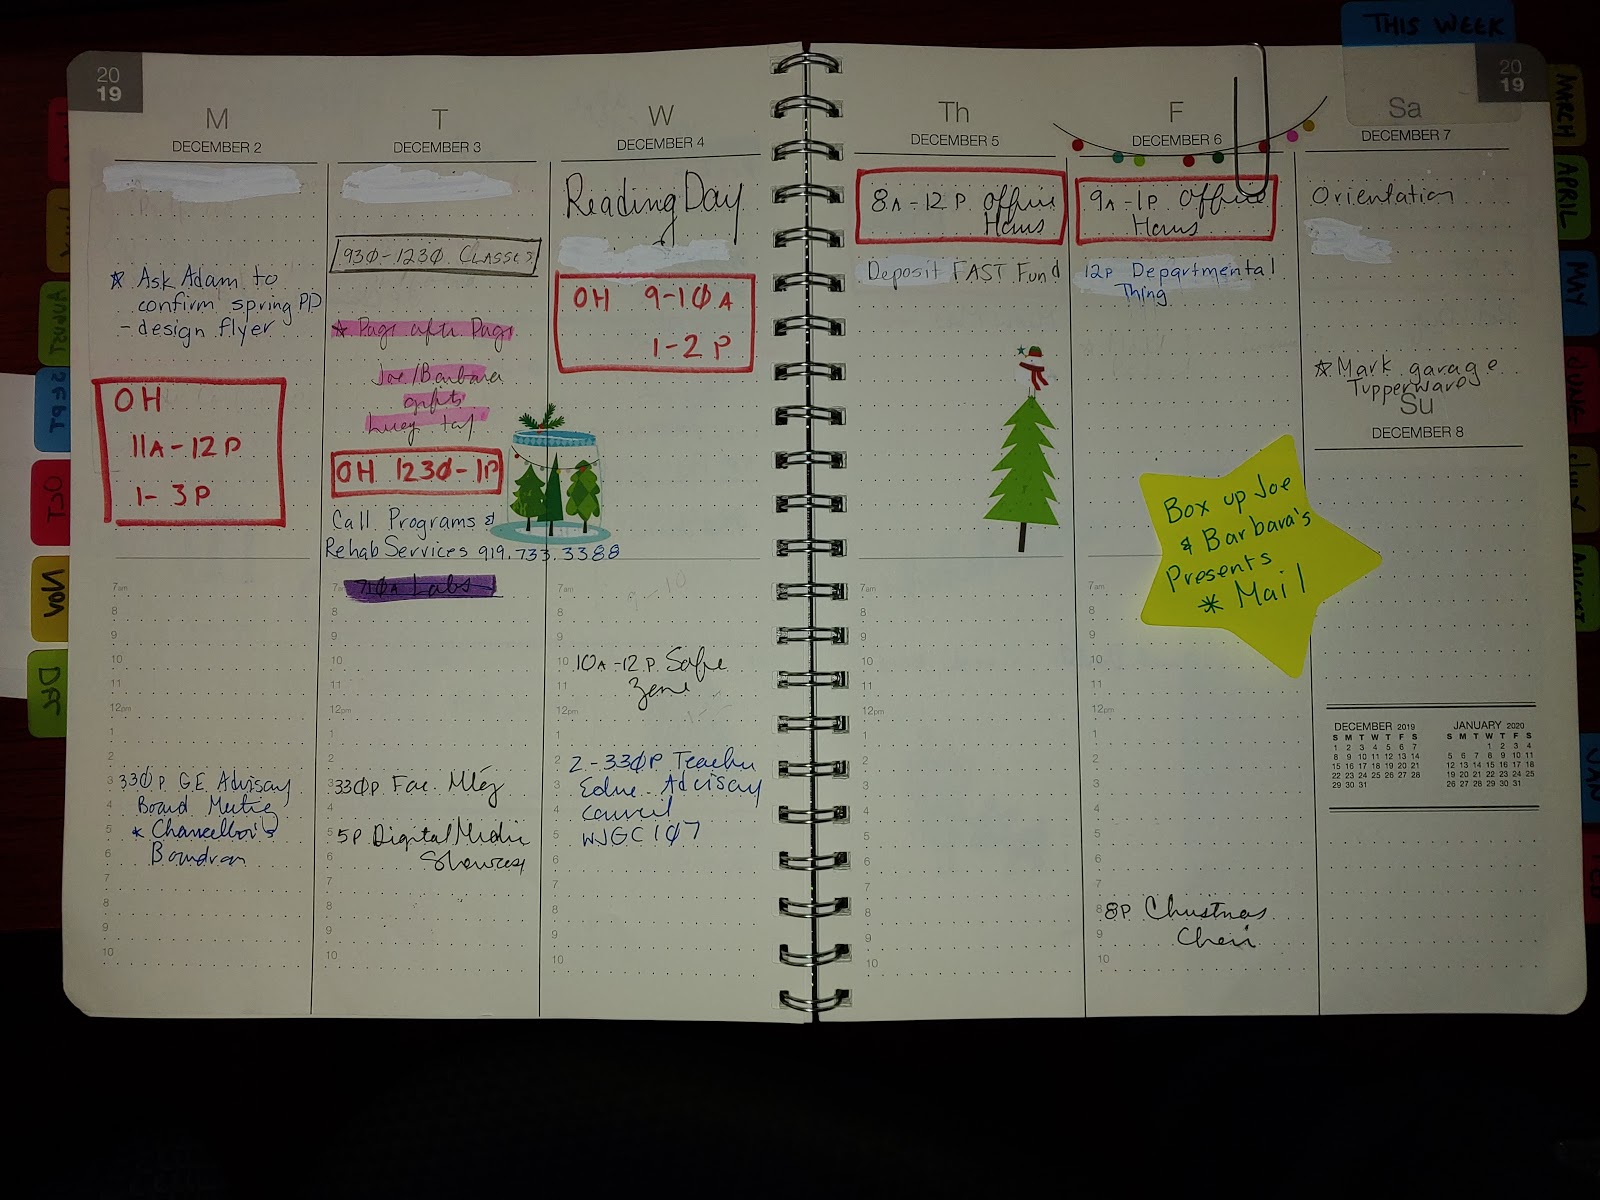 THIS WEEK
20
19
M
DECEMBER 2
☆ Ask Adam to
confirm spring PD
- design flyer
OH
11A-12P
1-3P
7am
8
9
10
11
12pm
1
2
3
330P G.E. Advisory
4
Board Meeting
5
* Chancellor's
6
7
8
9
10
T
DECEMBER 3
930-1230 CLASSES
☆ Page after Page
Joe/Barbara
gifts
OH 1230-1P
Call Programs &
Rehab Services 919.733.3388
730A Labs
8
9
10
11
12pm
1
2
3
330P Fac. Mtg
4
5
5P Digital Media
6
Showcase
7
8
9
10
W
DECEMBER 4
Reading Day
OH 9-10A
1-2P
7am
8
9
10
10A-12P. Safe
11
Zone
12pm
1
2
2-330P Teacher
3
Educ. Advisory
4
Council
5
WJGC 107
6
7
8
9
10
Th
DECEMBER 5
8A-12P Office
Hours
Deposit FAST Fund
7am
8
9
10
11
12pm
1
2
3
4
5
6
7
8
9
10
F
DECEMBER 6
9A-1P Office
Hours
12P Departmental
Thing
7am
8
9
10
11
12pm
1
2
3
4
5
6
7
8
8P Christmas
9
Cheer
10
20
19
Sa
DECEMBER 7
Orientation
☆ Mark garage
Tupperware
Su
DECEMBER 8
Box up Joe
& Barbara's
Presents
* Mail
DECEMBER 2019
S M T W T F S
1 2 3 4 5 6 7
8 9 10 11 12 13 14
15 16 17 18 19 20 21
22 23 24 25 26 27 28
29 30 31
JANUARY 2020
S M T W T F S
1 2 3 4
5 6 7 8 9 10 11
12 13 14 15 16 17 18
19 20 21 22 23 24 25
26 27 28 29 30 31
SEPT
OCT
NOV
DEC
MARCH
APRIL
MAY
JUNE
JULY
AUGUST
JAN